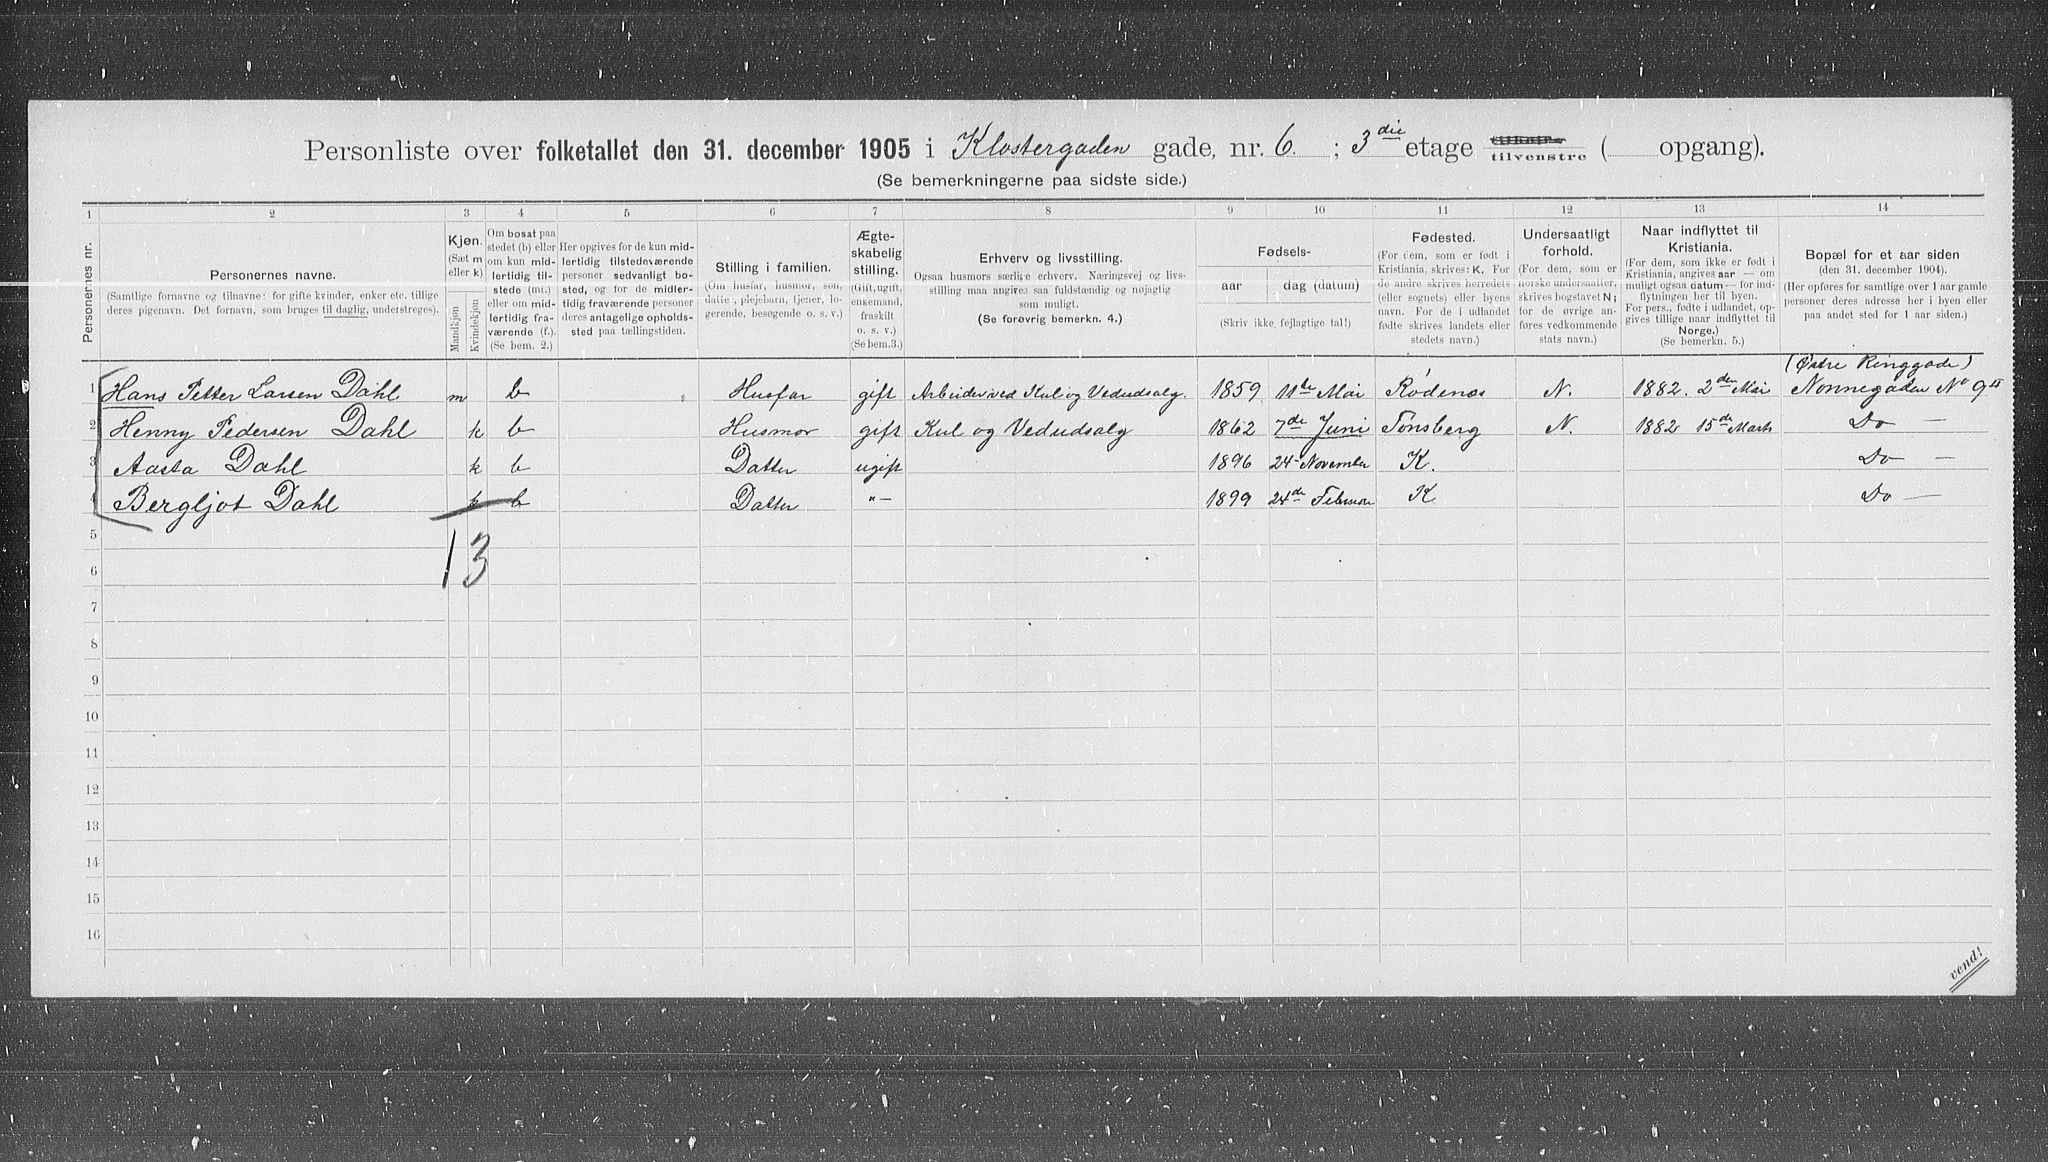 Personliste over folketallet den 31. december 1905 i Klostergaden gade, nr. 6. ; 3die etage tilvenstre ( opgang).
(Se bemerkningerne paa sidste side.)
1 2 3 4 5 6 7 8 9 10 11 12 13 14
Personernes nr.
Personernes navne.
(Samtlige fornavne og tilnavne; for gifte kvinder, enker etc. tillige
deres pigenavn. Det fornavn, som bruges til daglig, understreges).
Kjøn.
(Sæt m
eller k)
Mandkjøn
Kvindekjøn
Om bosat paa
stedet (b) eller
om kun mid-
lertidig til-
stede (mt.)
eller om mid-
lertidig fra-
værende (f.).
(Se bem. 2.)
Her opgives for de kun mid-
lertidig tilstedeværende
personer sedvanligt bo-
sted, og for de midler-
tidig fraværende personer
deres antagelige opholds-
sted paa tællingstiden.
Stilling i familien.
(Om husfar, husmor, søn,
datter, plejebarn, tjener, lo-
gerende, besøgende o. s. v.)
Ægte-
skabelig
stilling.
(Gift, ugift,
enkemand,
fraskilt
o. s. v.)
(Se bem.3.)
Erhverv og livsstilling.
Ogsaa husmors særlige erhverv. Næringsvej og livs-
stilling maa angives saa fuldstændig og nøjagtig
som muligt.
(Se forøvrig bemerkn. 4.)
Fødsels-
aar dag (datum)
(Skriv ikke fejlagtige tal!)
Fødested.
(For dem, som er født i
Kristiania, skrives: K. For
de andre skrives herredets
(eller sognets) eller byens
navn. For de i udlandet
fødte skrives landets eller
stedets navn.)
Undersaatligt
forhold.
(For dem, som er
norske undersaatter,
skrives bogstavet N;
for de øvrige an-
føres vedkommende
stats navn.)
Naar indflyttet til
Kristiania.
(For dem, som ikke er født i
Kristiania, angives aar — om
muligt ogsaa datum — for ind-
flytningen her til byen.
For pers., fødte i udlandet, op-
gives tillige naar indflyttet til
Norge.)
(Se bemerkn. 5.)
Bopæl for et aar siden
(den 31. december 1904).
(Her opføres for samtlige over 1 aar gamle
personer deres adresse her i byen eller
paa andet sted for 1 aar siden.)
(Østre Ringgade)
1 Hans Petter Larsen Dahl m b Husfar gift Arbeider ved Kul og Vedudsalg. 1859 11te Mai Rødenæs N. 1882. 2den Mai Nonnegaden No 9 II
2 Henny Pedersen Dahl k b Husmor gift Kul og Vedudsalg 1862 7de Juni Tønsberg N. 1882 15de Marts Do —
3 Aasta Dahl k b Datter ugift 1896 24 November K. Do —
4 Bergljot Dahl k b Datter "— 1899 24de Februar K Do —
5
1 3
6
7
8
9
10
11
12
13
14
15
16
vend!